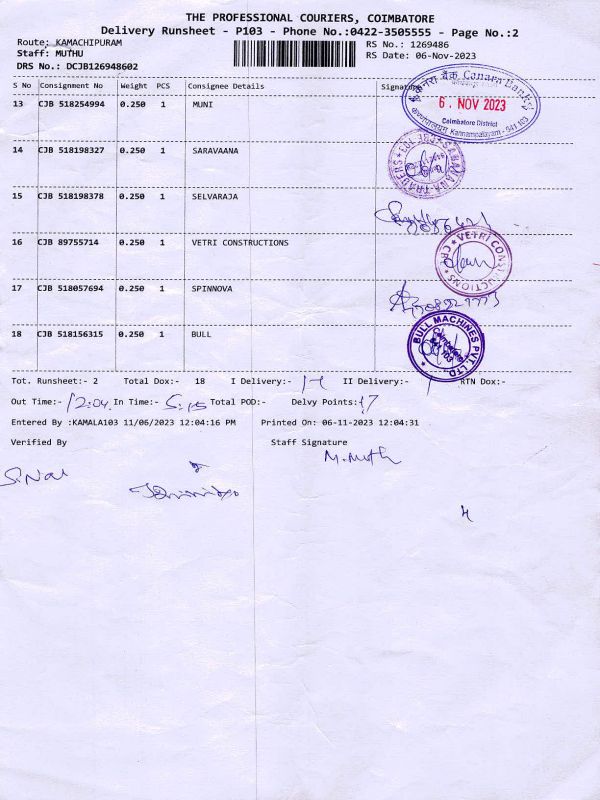 THE PROFESSIONAL COURIERS, COIMBATORE
Delivery Runsheet - P103 - Phone No.:0422-3505555 - Page No.:2
Route: KAMACHIPURAM RS No.: 1269486
Staff: MUTHU RS Date: 06-Nov-2023
DRS No.: DCJB126948602
S No Consignment No Weight PCS Consignee Details Signature
Canara Bank
6. NOV 2023
Coimbatore District
Kannampalayam - 641 103
13 CJB 518254994 0.250 1 MUNI
14 CJB 518198327 0.250 1 SARAVAANA
TRADERS
15 CJB 518198378 0.250 1 SELVARAJA
16 CJB 89755714 0.250 1 VETRI CONSTRUCTIONS
VETRI CONSTRUCTIONS
17 CJB 518057694 0.250 1 SPINNOVA
18 CJB 518156315 0.250 1 BULL
BULL MACHINES PVT. LTD.
Tot. Runsheet:- 2 Total Dox:- 18 I Delivery:- 17 II Delivery:- 1 RTN Dox:-
Out Time:- 12:04 In Time:- 5:15 Total POD:- Delvy Points:17
Entered By :KAMALA103 11/06/2023 12:04:16 PM Printed On: 06-11-2023 12:04:31
Verified By Staff Signature
M.Muth